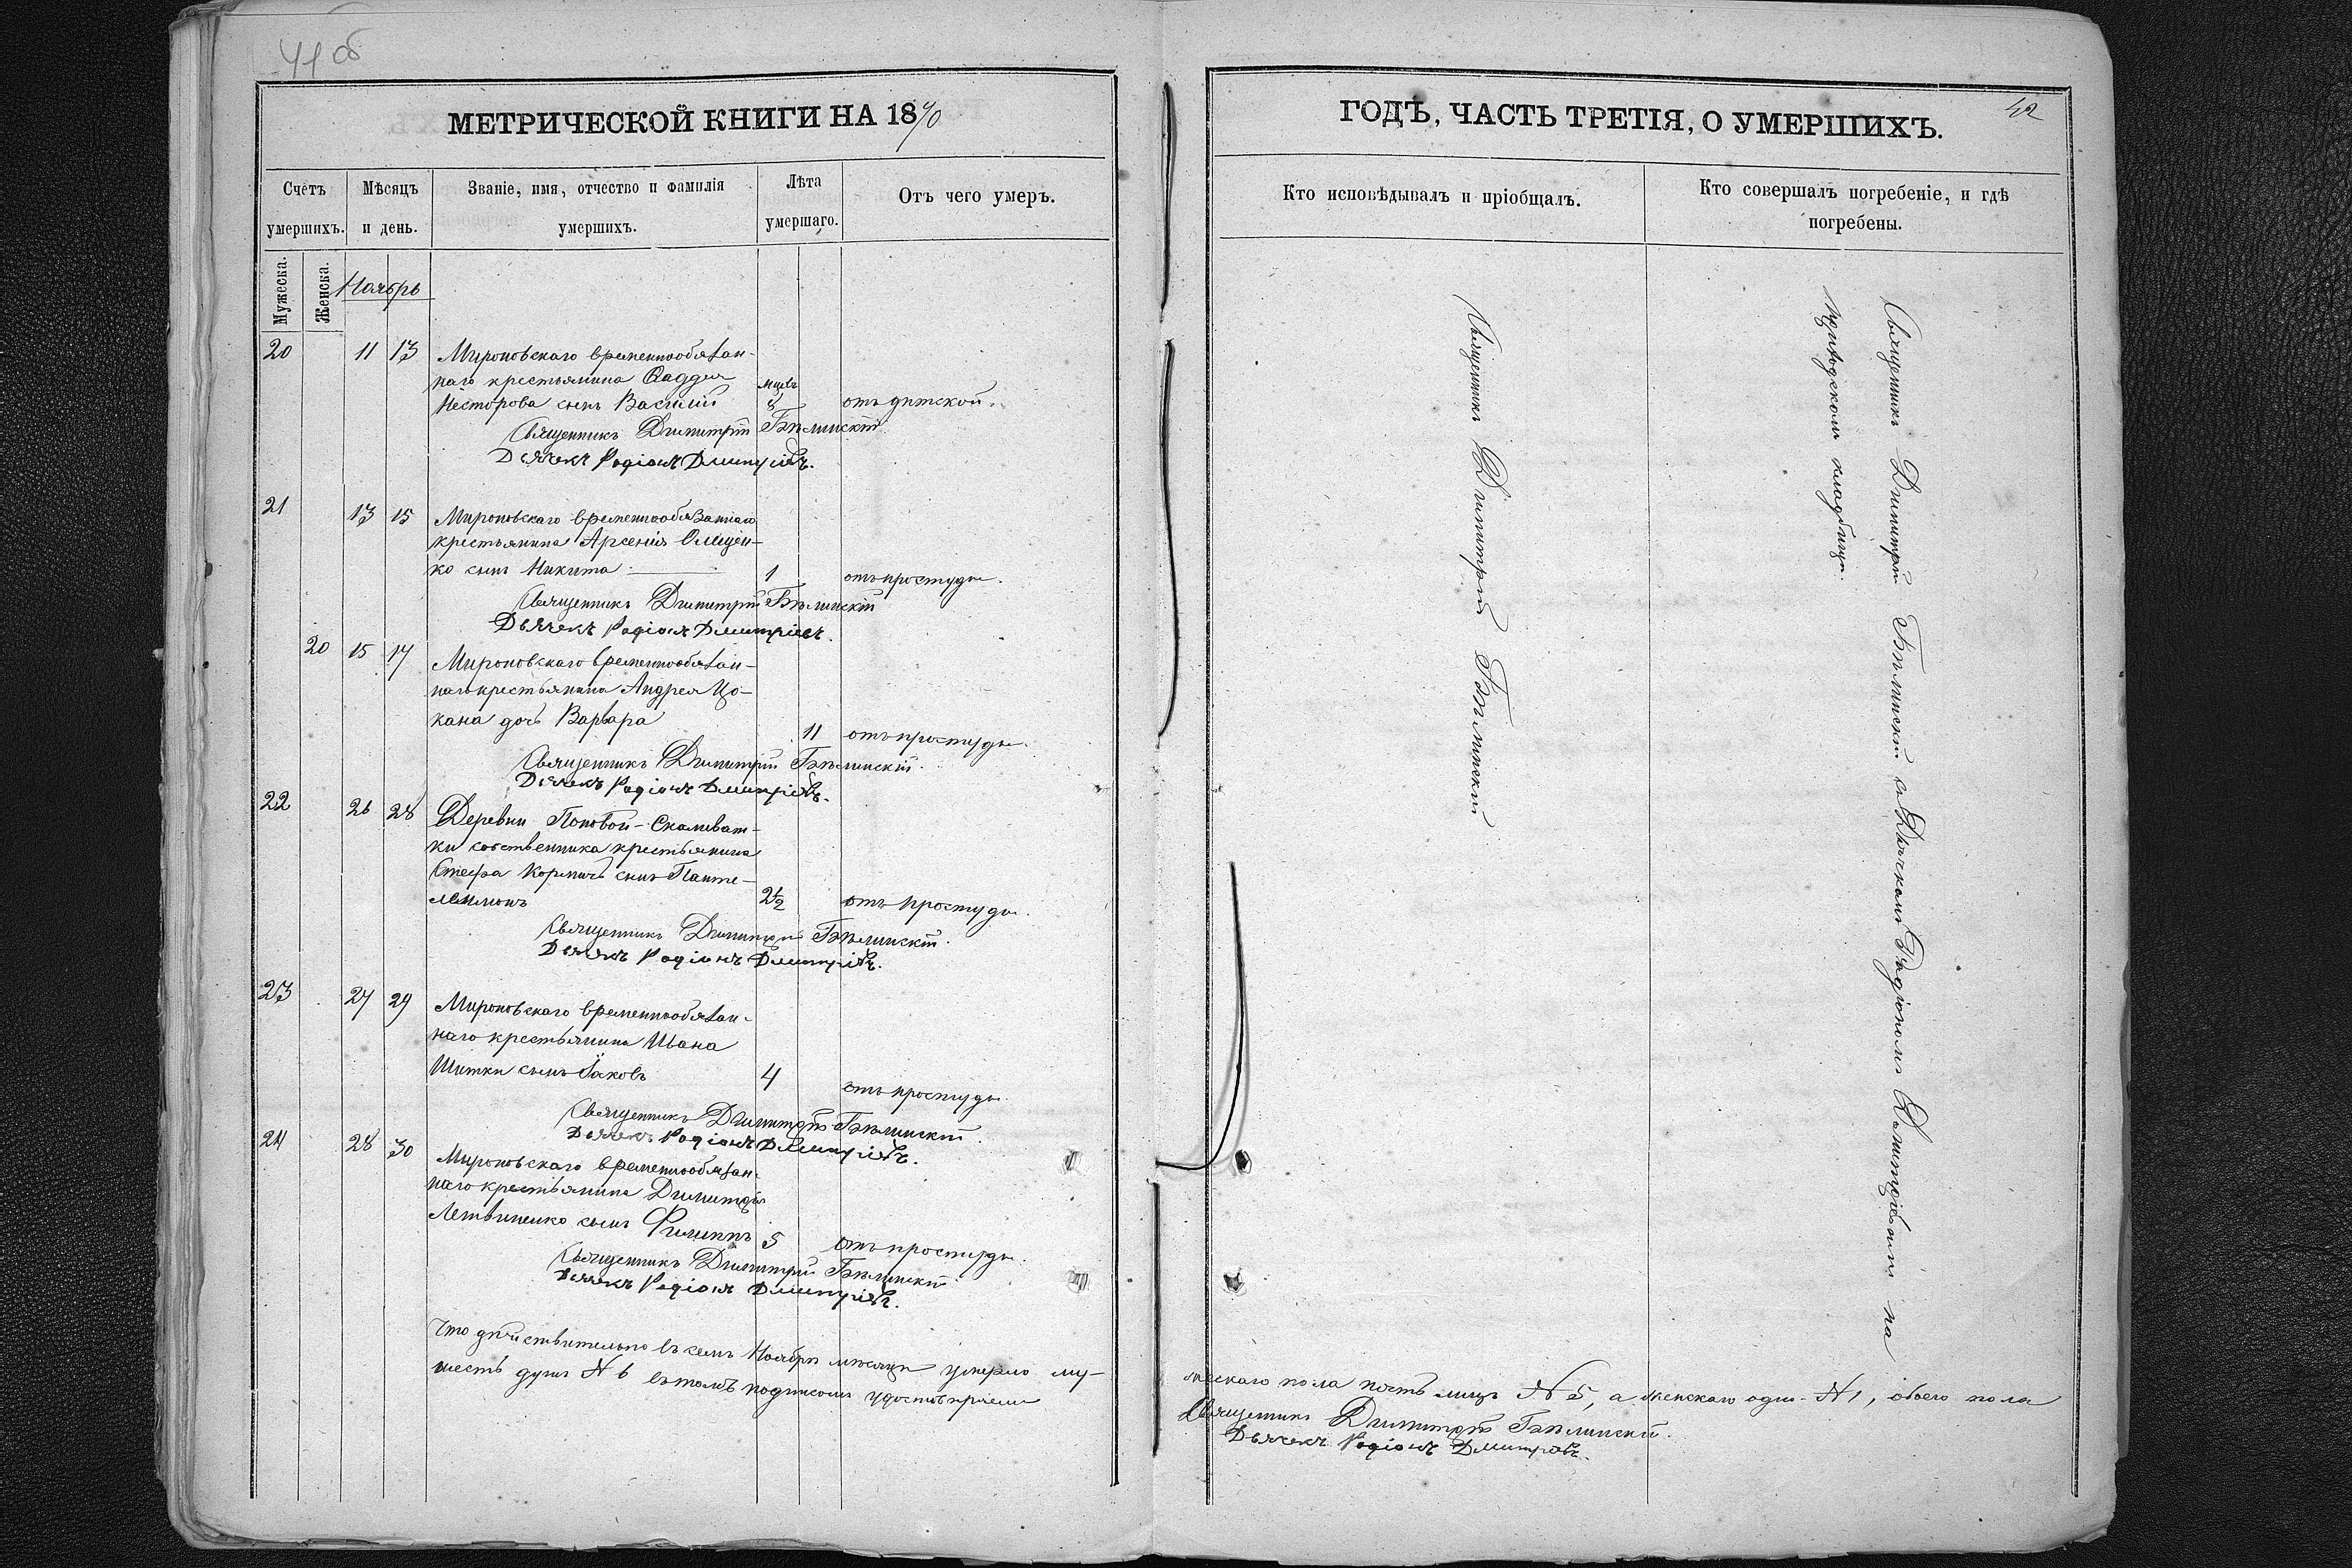 41 об
МЕТРИЧЕСКОЙ КНИГИ НА 1870
Счетъ умершихъ.
Мѣсяцъ и день.
Званіе, имя, отчество и фамилія умершихъ.
Лѣта умершаго.
Отъ чего умеръ.
Мужеска.
Женска.
Ноябрь
20 11 13 Мироновскаго временнообязан-
наго крестьянина Фаддея мцвъ
Несторова сынъ Василій отъ дѣтской.
Священникъ Димитрій Бѣлинскій
Дьячекъ Родіонъ Дмитріевъ.
21 13 15 Мироновскаго временнообязаннаго
крестьянина Арсенія Онищен-
ко сынъ Никита 1 отъ простуды.
Священникъ Димитрій Бѣлинскій
Дьячекъ Родіонъ Дмитріевъ.
20 15 17 Мироновскаго временнообязан-
наго крестьянина Андрея Цо-
кана дочь Варвара 11 отъ простуды.
Священникъ Димитрій Бѣлинскій.
Дьячекъ Родіонъ Дмитріевъ.
22 26 28 Деревни Поповой-Скаливат-
ки собственника крестьянина
сынъ Панте-
леимонъ 2½ отъ простуды.
Священникъ Димитрій Бѣлинскій.
Дьячекъ Родіонъ Дмитріевъ.
23 27 29 Мироновскаго временнообязан-
наго крестьянина Ивана
Шитки сынъ Іаковъ 4 отъ простуды.
Священникъ Димитрій Бѣлинскій.
Дьячекъ Родіонъ Дмитріевъ.
24 28 30 Мироновскаго временнообязан-
наго крестьянина Димитрія
Летвиненко сынъ Филиппъ 5 отъ простуды.
Священникъ Димитрій Бѣлинскій
Дьячекъ Родіонъ Дмитріевъ.
Что дѣйствительно въ семъ Ноябрѣ мѣсяцѣ умерло му-
шесть душъ N 6 въ томъ подписомъ удостовѣряемъ
ГОДЪ, ЧАСТЬ ТРЕТІЯ, О УМЕРШИХЪ.
42
Кто исповѣдывалъ и пріобщалъ.
Кто совершалъ погребеніе, и гдѣ погребены.
Священникъ Димитрій Бѣлинскій
Священникъ Димитрій Бѣлинскій съ Дьячкомъ Родіономъ Димитріевымъ на
приходскомъ кладбищѣ.
жескаго пола пять лицъ N 5, а женскаго одно N 1, обоего пола
Священникъ Димитрій Бѣлинскій.
Дьячекъ Родіонъ Дмитріевъ.